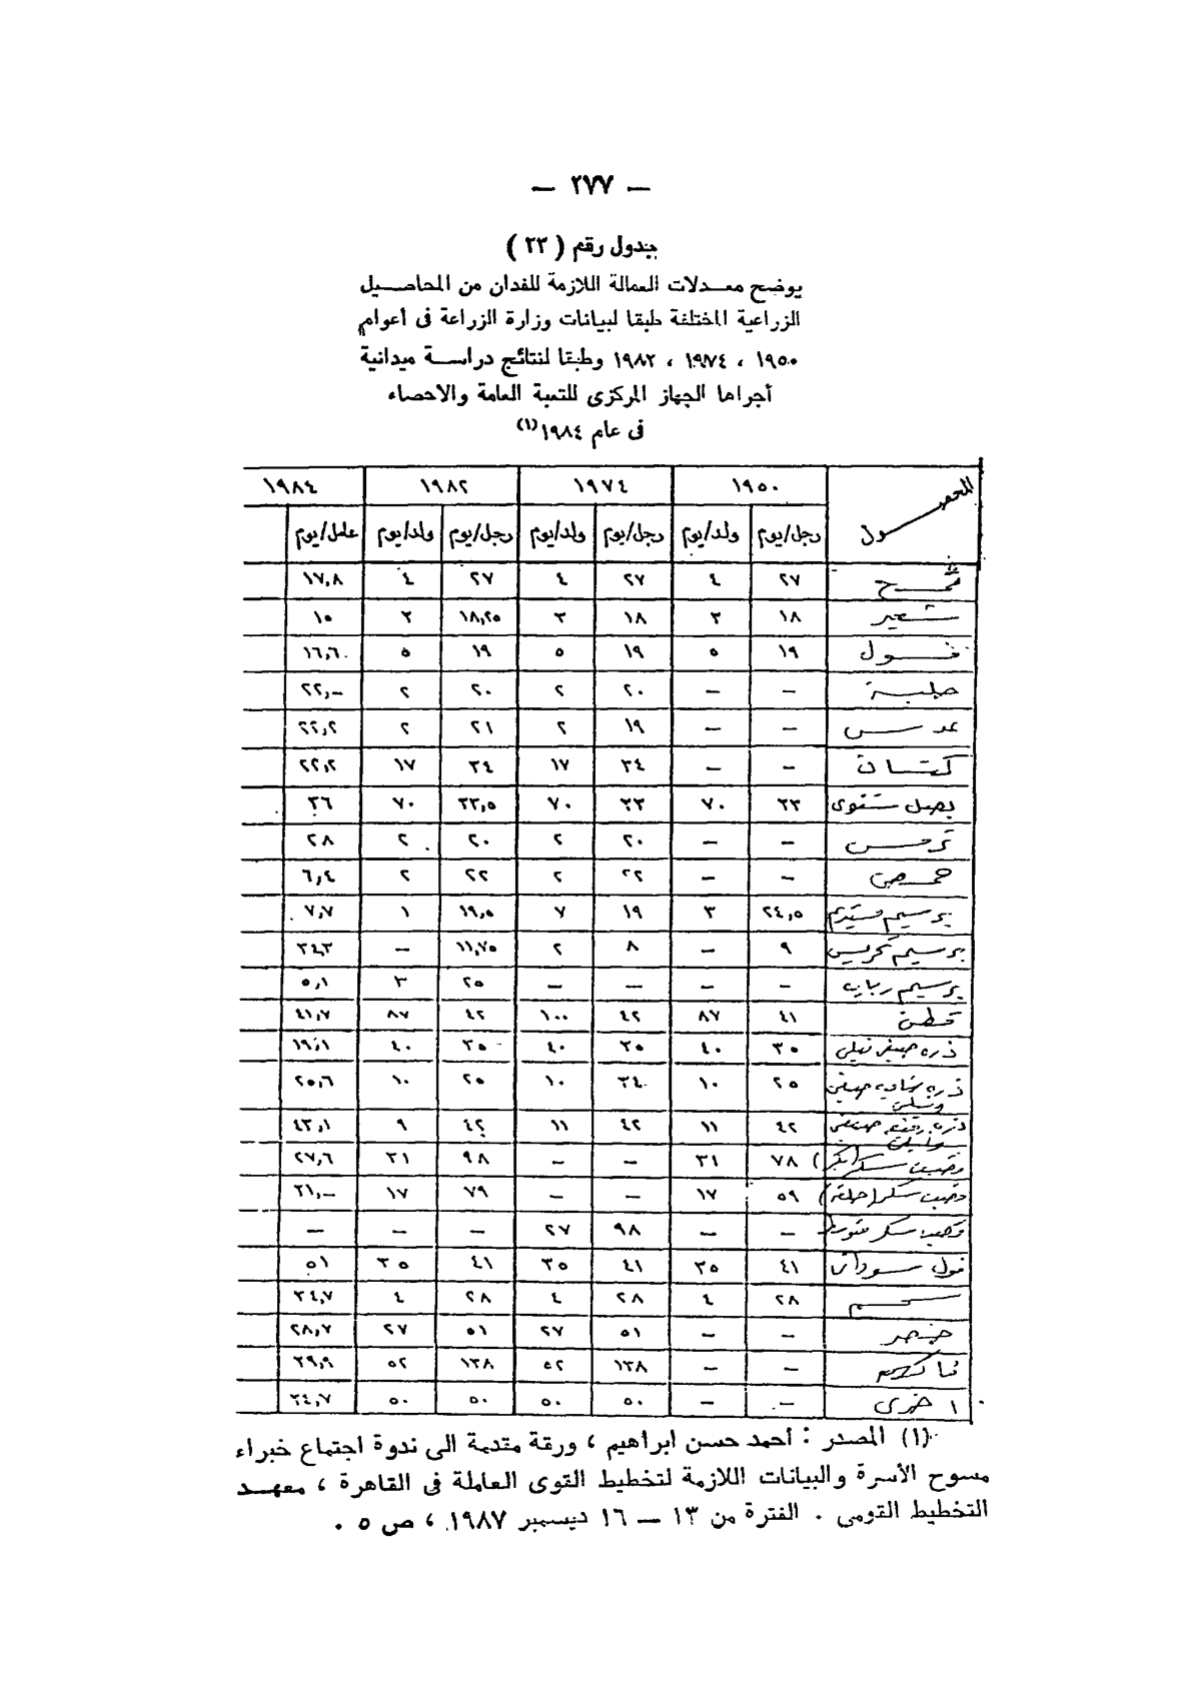 — ٢٧٧ —
جدول رقم ( ٢٣ )
يوضح معدلات العمالة اللازمة للفدان من المحاصيل
الزراعية المختلفة طبقا لبيانات وزارة الزراعة فى أعوام
١٩٥٠ ، ١٩٧٤ ، ١٩٨٢ وطبقا لنتائج دراسة ميدانية
أجراها الجهاز المركزى للتعبة العامة والاحصاء
فى عام ١٩٨٤(١)
المحصول ١٩٥٠ ١٩٧٤ ١٩٨٢ ١٩٨٤
رجل/يوم ولد/يوم رجل/يوم ولد/يوم رجل/يوم ولد/يوم عامل/يوم
قمح ٢٧ ٤ ٢٧ ٤ ٢٧ ٤ ١٧,٨
شعير ١٨ ٣ ١٨ ٣ ١٨,٢٥ ٣ ١٥
فول ١٩ ٥ ١٩ ٥ ١٩ ٥ ١٦,٦
حلبة — — ٢٠ ٢ ٢٠ ٢ ٢٢,—
عدس — — ١٩ ٢ ٢١ ٢ ٢٢,٢
كتان — — ٣٤ ١٧ ٣٤ ١٧ ٢٢,٢
بصل شتوى ٣٣ ٧٠ ٣٣ ٧٠ ٣٣,٥ ٧٠ ٣٦
ترمس — — ٢٠ ٢ ٢٠ ٢ ٢٨
حمص — — ٢٢ ٢ ٢٢ ٢ ٦,٤
برسيم مستديم ٢٤,٥ ٣ ١٩ ٧ ١٩,٥ ١ ٧,٧
برسيم تحريش ٩ — ٨ ٢ ١١,٧٥ — ٣٤,٣
برسيم رباية — — — — ٢٥ ٣ ٥,١
قطن ٤١ ٨٧ ٤٢ ١٠٠ ٤٢ ٨٧ ٤١,٧
ذره صيفى نيلى ٣٥ ٤٠ ٣٥ ٤٠ ٣٥ ٤٠ ١٩,١
ذره شاميه صيفى
ونيلى ٢٥ ١٠ ٣٤ ١٠ ٢٥ ١٠ ٢٥,٦
ذره رفيعه صيفى
٤٢ ١١ ٤٢ ١١ ٤٢ ٩ ٤٣,١
قصب سكر (بكر) ٧٨ ٣١ — — ٩٨ ٣١ ٢٧,٦
قصب سكر (خلفة) ٥٩ ١٧ — — ٧٩ ١٧ ٣١,—
قصب سكر متوسط — — ٩٨ ٢٧ — — —
فول سودانى ٤١ ٣٥ ٤١ ٣٥ ٤١ ٣٥ ٥١
سمسم ٢٨ ٤ ٢٨ ٤ ٢٨ ٤ ٣٤,٧
خضر — — ٥١ ٢٧ ٥١ ٢٧ ٢٨,٧
فاكهه — — ١٣٨ ٥٢ ١٣٨ ٥٢ ٣٩,٩
اخرى — — ٥٠ ٥٠ ٥٠ ٥٠ ٣٤,٧
(١) المصدر : أحمد حسن ابراهيم ، ورقة مقدمة الى ندوة اجتماع خبراء
مسوح الأسرة والبيانات اللازمة لتخطيط القوى العاملة فى القاهرة ، معهد
التخطيط القومى . الفترة من ١٣ — ١٦ ديسمبر ١٩٨٧ ، ص ٥ .